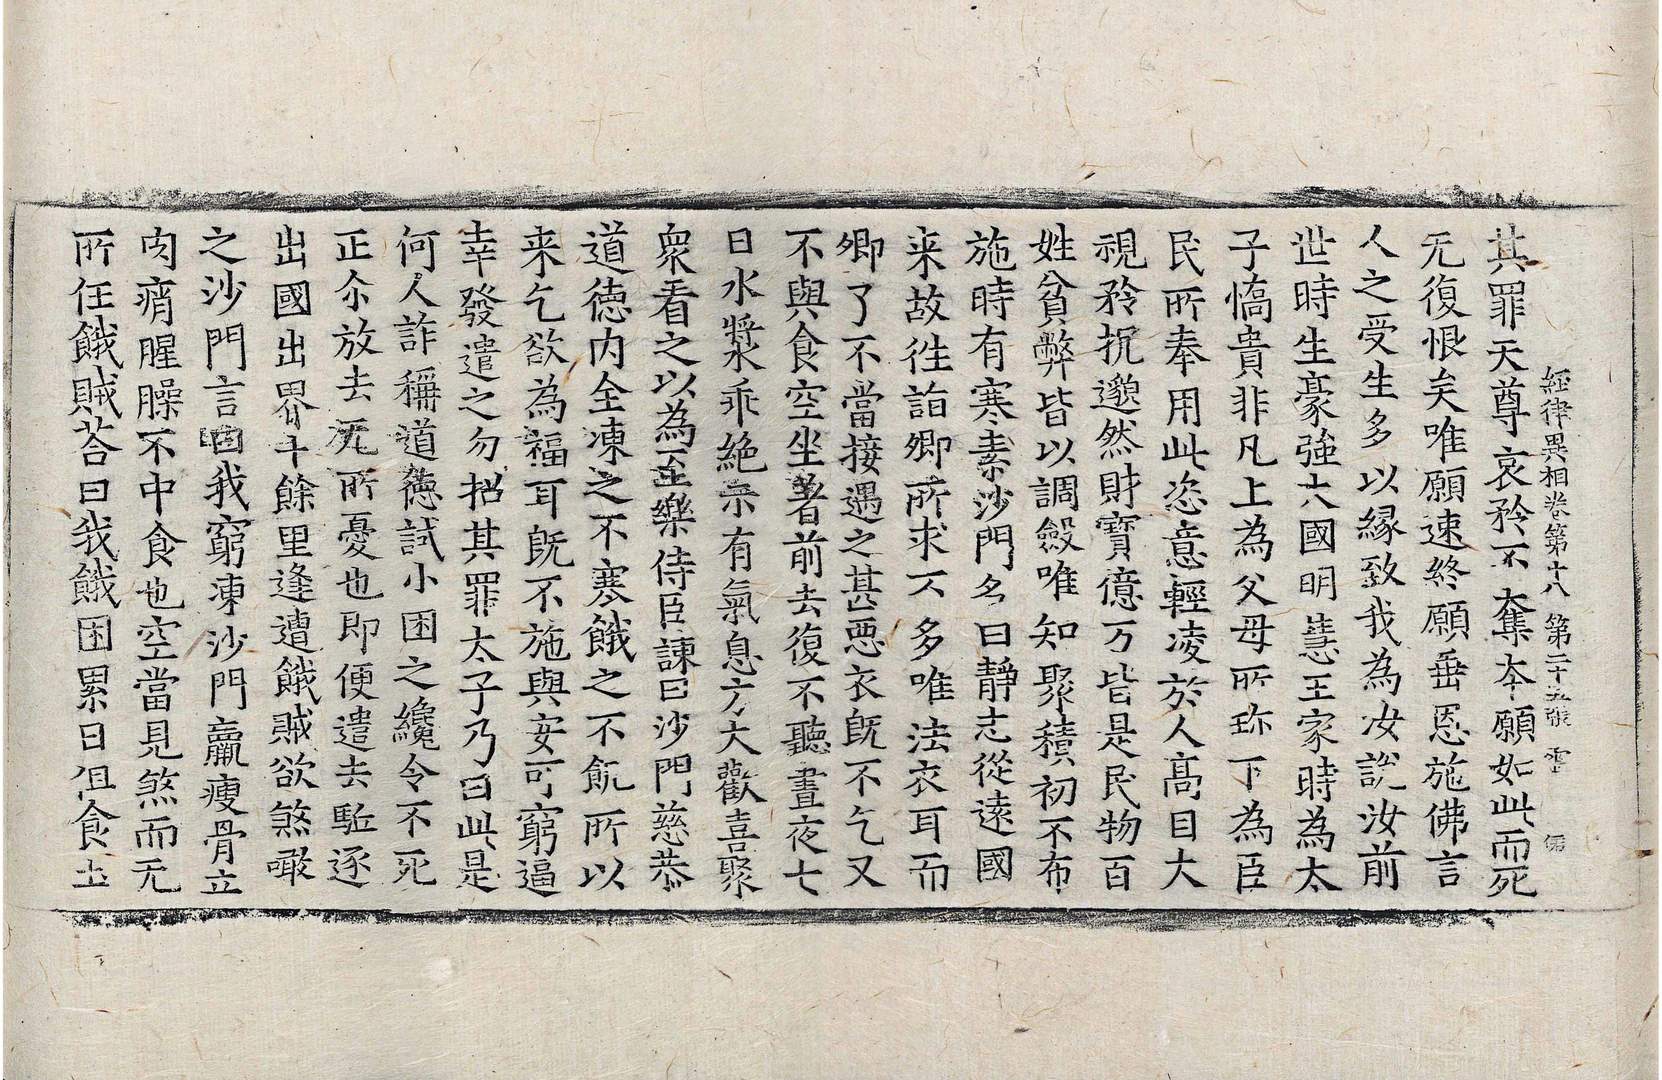 經律異相卷第十八 第二十五張 雲
其罪天尊哀矜不奪本願如此而死
无復恨矣唯願速終願垂恩施佛言
人之受生多以緣致我為汝說汝前
世時生豪強大國明慧王家時為太
子憍貴非凡上為父母所珎下為臣
民所奉用此恣意輕凌於人高目大
視矜抗邈然財寶億万皆是民物百
姓貧弊皆以調斂唯知聚積初不布
施時有寒素沙門名曰靜志從遠國
来故往詣卿所求不多唯法衣耳而
卿了不當接遇之甚惡衣既不乞又
不與食空坐著前去復不聽晝夜七
日水漿乖絕示有氣息方大歡喜聚
衆看之以為至樂侍臣諫曰沙門慈恭
道德內全凍之不寒餓之不飢所以
来乞欲為福耳既不施與安可窮逼
幸發遣之勿招其罪太子乃曰此是
何人詐稱道德試小困之纔令不死
正尒放去无所憂也即便遣去駈逐
出國出界十餘里逢遭餓賊欲煞噉
之沙門言曰我窮凍沙門羸瘦骨立
肉痟腥臊不中食也空當見煞而无
所任餓賊荅曰我餓困累日但食土